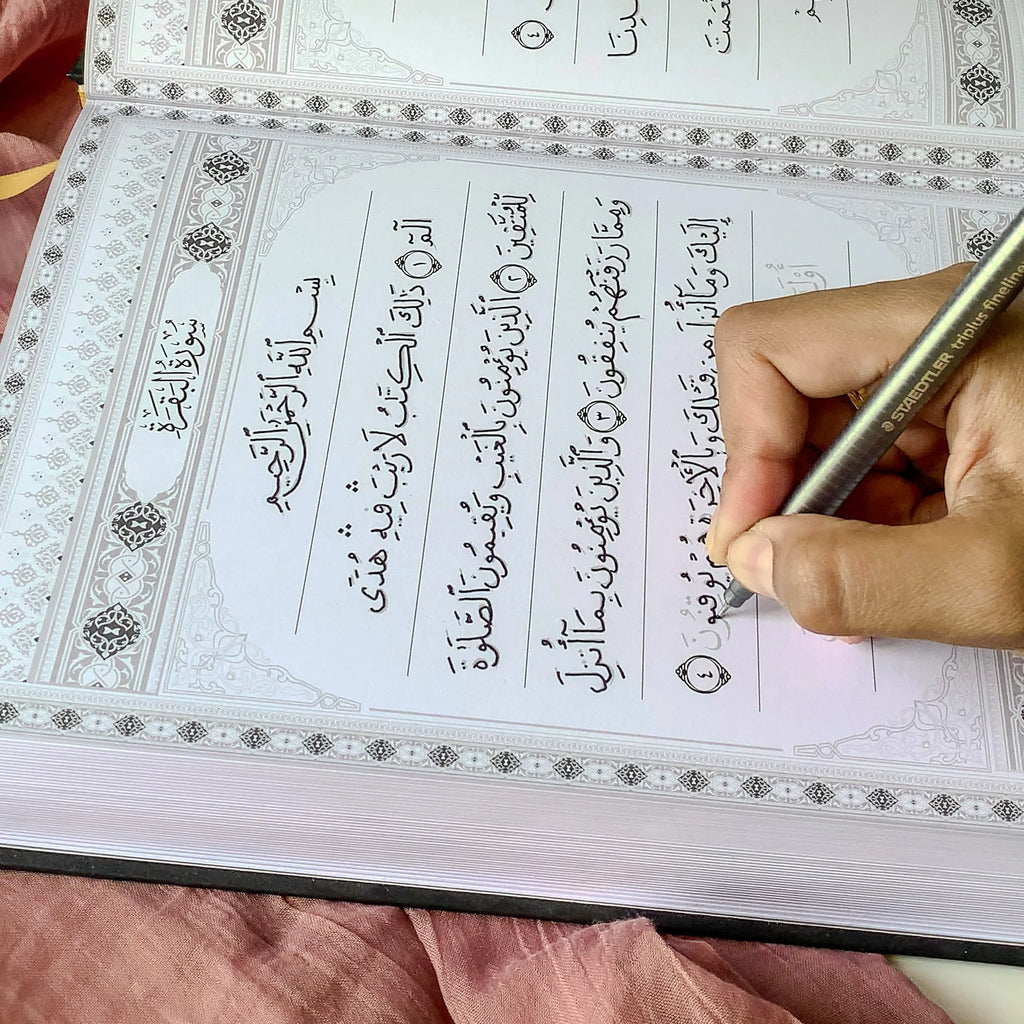 سُورَةُ ٱلْبَقَرَةِ
بِسْمِ ٱللَّهِ ٱلرَّحْمَٰنِ ٱلرَّحِيمِ
الٓمٓ ١ ذَٰلِكَ ٱلْكِتَٰبُ لَا رَيْبَ ۛ فِيهِ ۛ هُدًى
لِّلْمُتَّقِينَ ٢ ٱلَّذِينَ يُؤْمِنُونَ بِٱلْغَيْبِ وَيُقِيمُونَ ٱلصَّلَوٰةَ
وَمِمَّا رَزَقْنَٰهُمْ يُنفِقُونَ ٣ وَٱلَّذِينَ يُؤْمِنُونَ بِمَآ أُنزِلَ
إِلَيْكَ وَمَآ أُنزِلَ مِن قَبْلِكَ وَبِٱلْأَخِرَةِ هُمْ يُوقِنُونَ ٤
٤
STAEDTLER triplus fineline